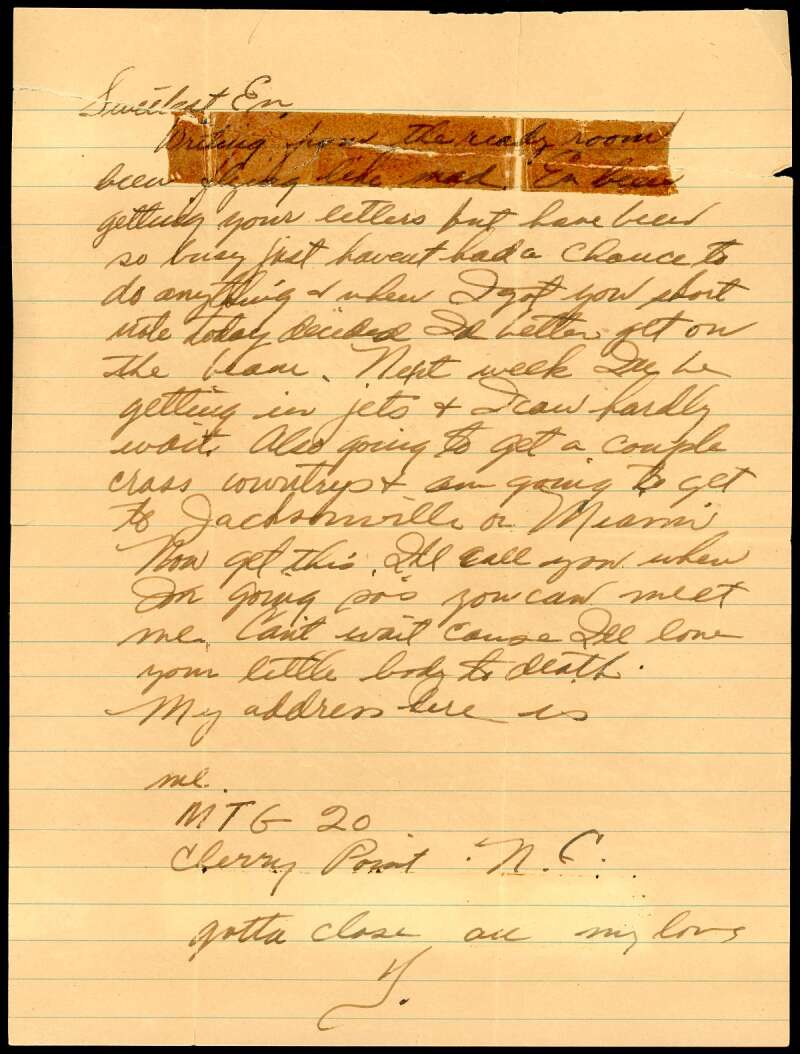 Sweetest En,
Writing from the ready room
been flying like mad. I'v been
getting your letters but have been
so busy just havent had a chance to
do anything & when I got you short
note today decided I'd better get on
the beam. Next week I'll be
getting in jets & I can hardly
wait. Also going to get a couple
cross countrys & am going to get
to Jacksonville or Miami
Now get this, I'll call you when
Im going so's you can meet
me. Can't wait cause I'll love
your little body to death.
My address here is
me.
MTG 20
Cherry Point N.C.
gotta close all my love